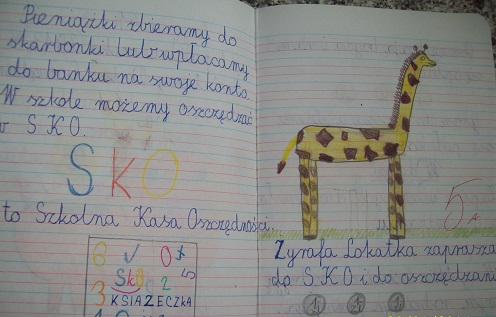 Pieniążki zbieramy do
skarbonki lub wpłacamy
do banku na swoje konto.
W szkole możemy oszczędzać
w S K O.
SKO
to Szkolna Kasa Oszczędności.
6 0
SkO
3 2
KSIĄŻECZKA
5
Żyrafa Lokatka zaprasza
do S K O i do oszczędzania
1 1 1